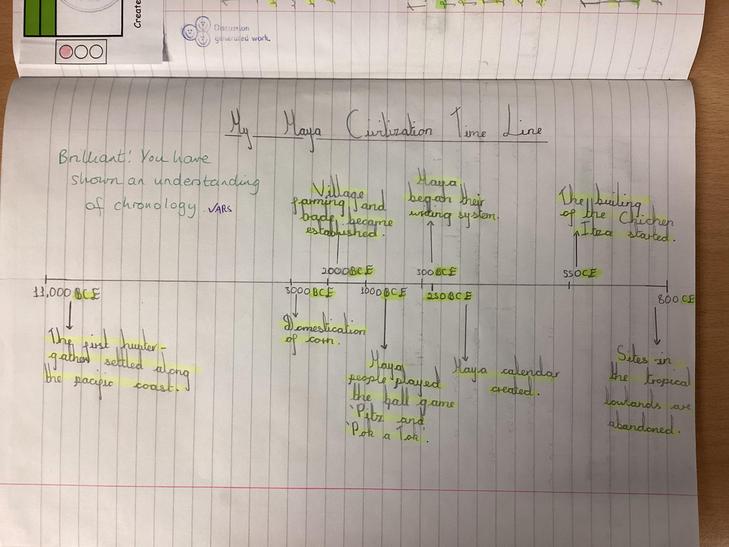 Create
Discussion
generated work.
My Maya Civilization Time Line
Brilliant! You have
shown an understanding
of chronology. VARS
Village
farming and
bade became
established.
Maya
began their
writing system.
The builing
of the Chichen
Itza started.
2000BCE
300BCE
550CE
11,000 BCE
3000BCE
1000BCE
250BCE
800 CE
The first hunter-
gather settled along
the pacific coast.
Domestication
of corn.
Maya
people played
the ball game
'Pitz and
'Pok a Tok'.
Maya calendar
created.
Sites in
the tropical
lowlands are
abandoned.